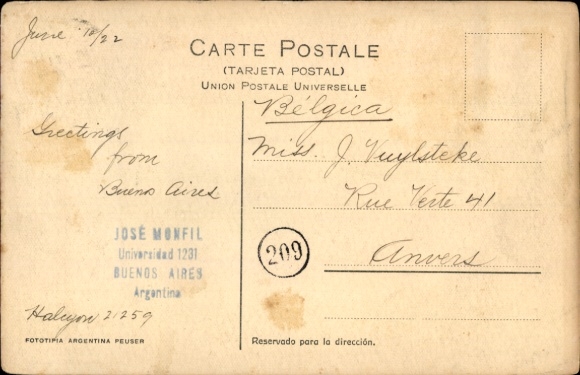 June 12/22
CARTE POSTALE
(TARJETA POSTAL)
UNION POSTALE UNIVERSELLE
Bélgica
Miss. J. Vuylsteke
Rue Verte 41
Anvers
Greetings
from
Buenos Aires
JOSÉ MONFIL
Universidad 1231
BUENOS AIRES
Argentina
209
Halcyon 21259
FOTOTIPIA ARGENTINA PEUSER
Reservado para la dirección.